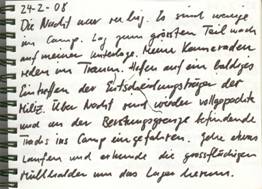 24-2-08
Die Nacht war ruhig. Es sind wenige
im Camp. Lag zum grössten Teil noch
auf meiner Unterlage. Meine Kameraden
reden im Traum. Hoffen auf ein baldiges
Eintreffen der Entscheidungsträger der
Miliz. Über Nacht sind wieder vollgepackte
und an der Belastungsgrenze befindende
Trucks ins Camp eingefahren. Gehe etwas
laufen und erkunde die grossflächigen
Müllhalden um das Lager herum.